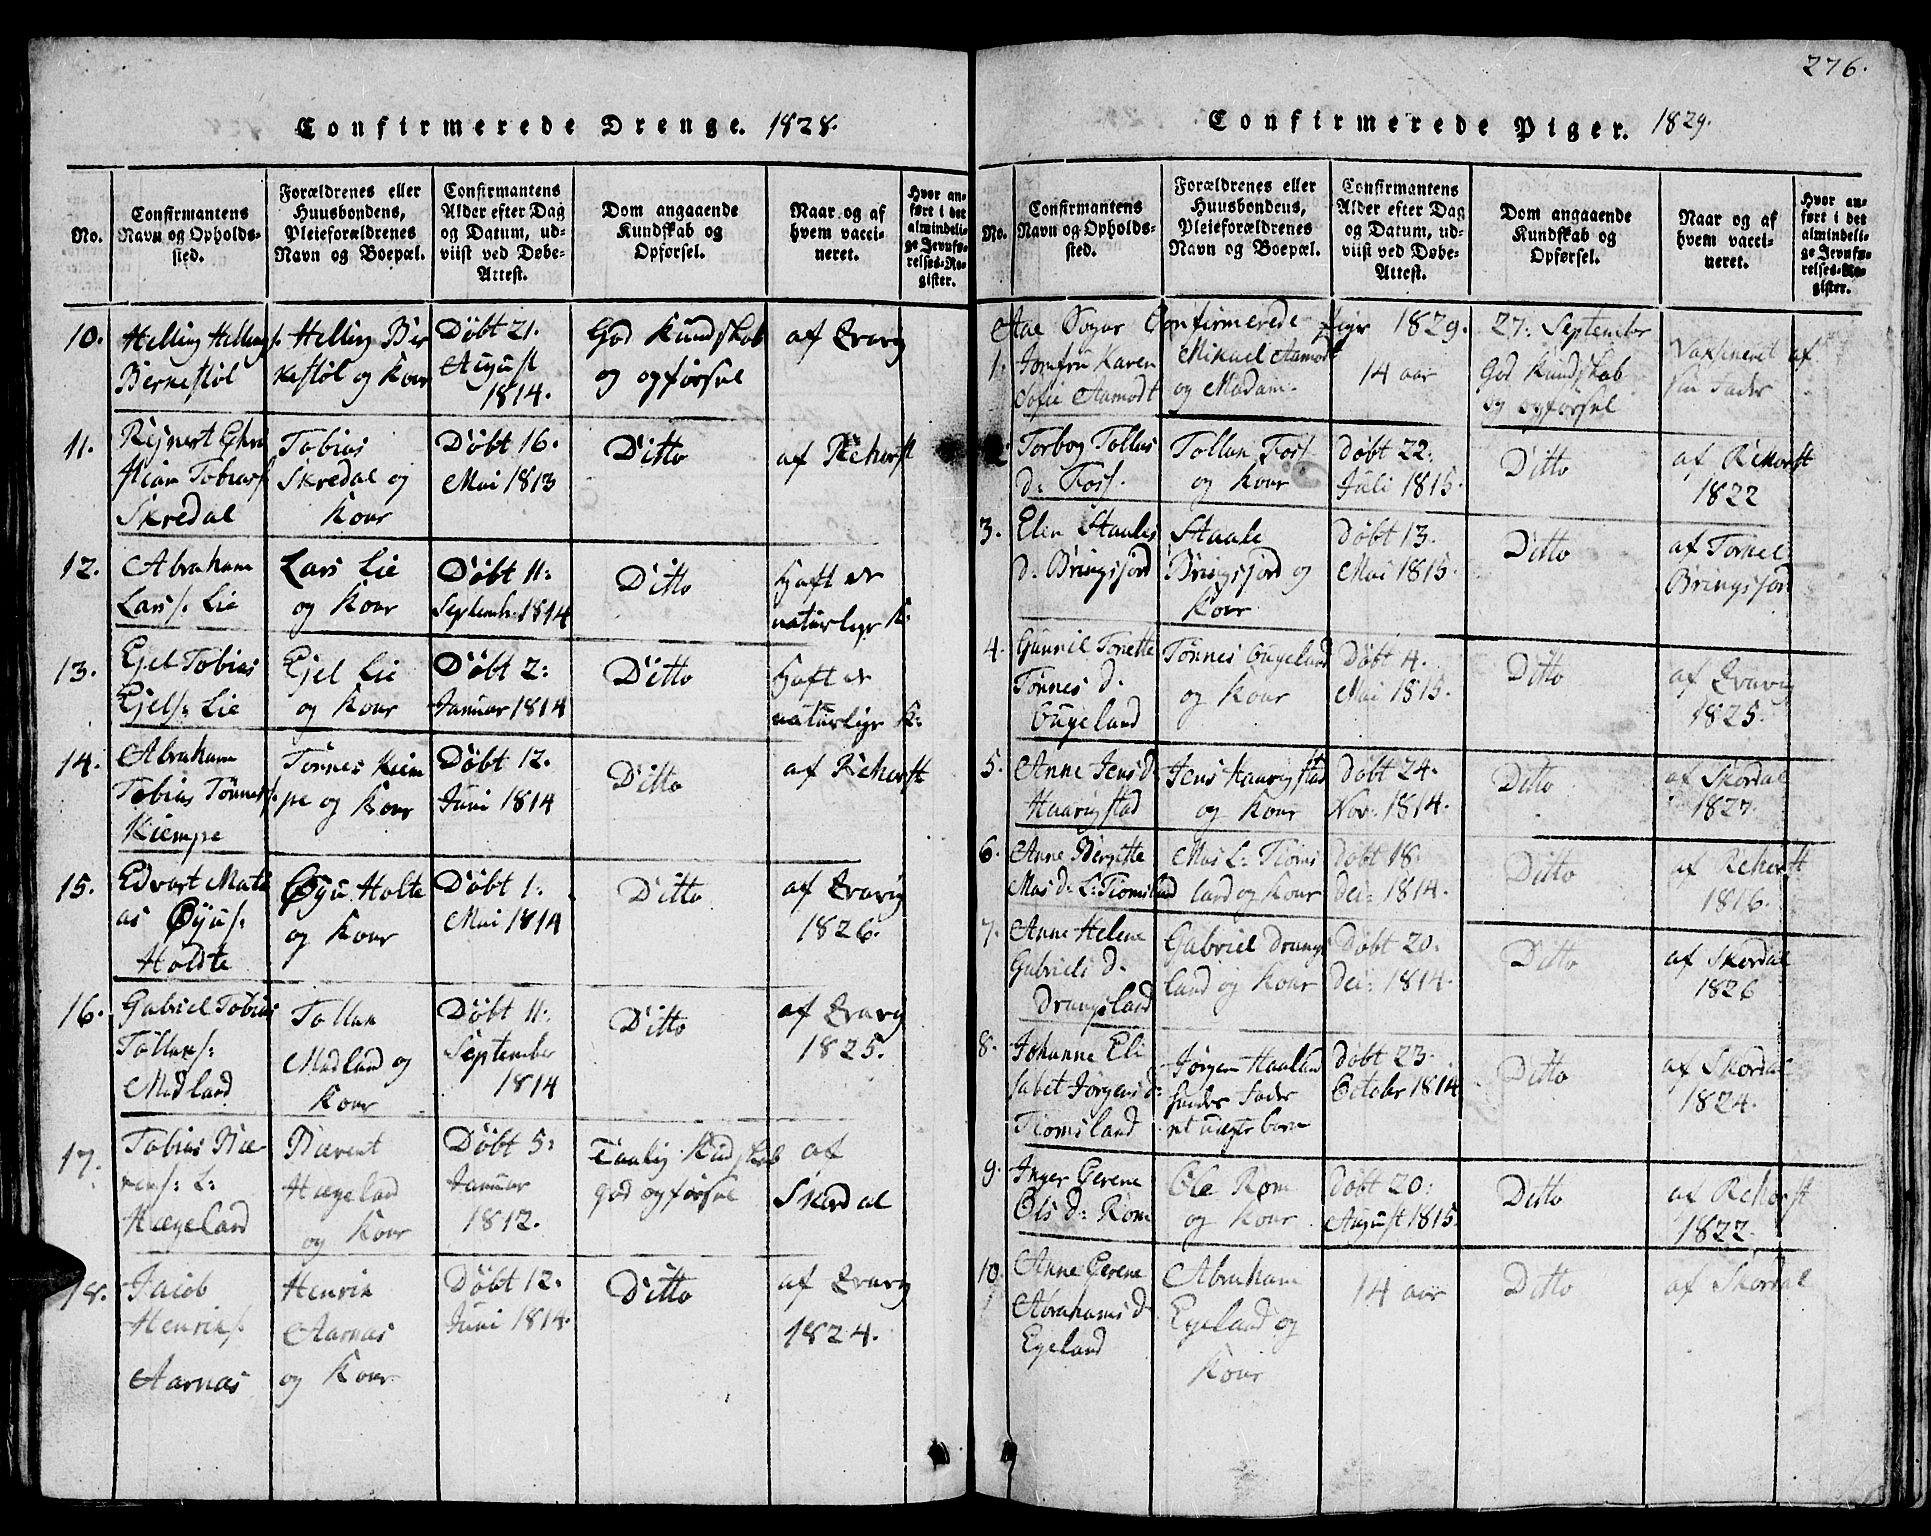 Confirmerede Drenge. 1828.
No.
Confirmantens
Navn og Opholds-
sted.
Forældrenes eller
Huusbondens,
Pleieforældrenes
Navn og Boepæl.
Confirmantens
Alder efter Dag
og Datum, ud-
viist ved Døbe-
Attest.
Dom angaaende
Kundskab og
Opførsel.
Naar og af
hvem vacci-
neret.
Hvor an-
ført i det
almindeli-
ge Jevnfø-
relses-Re-
gister.
10.
Helling Hellings:
Berkestøl
Helling Ber
kestøl og Kone
Døbt 21.
August
1814.
God Kundskab
og opførsel
af Qvavig
11.
Rejnert Chri
stian Tobiass
Skredal
Tobias
Skredal og
Kone
Døbt 16.
Mai 1813
Ditto
af Rekerst
12.
Abraham
Larss: Lie
Lars Lie
og Kone
Døbt 11:
Septemb: 1814
Ditto
Haft de
naturlige K:
13.
Ejel Tobias
Ejels: Lie
Ejel Lie
og Kone
Døbt 2:
Januar 1814
Ditto
Haft de
naturlige K:
14.
Abraham
Tobias Tønness.
Kiempe
Tønnes Kiem
pe og Kone
Døbt 12.
Juni 1814
Ditto
af Rekerst
15.
Edvart Mati
as Øyus:
Holdte
Øyu Holte
og Kone
Døbt 1:
Mai 1814
Ditto
af Qvavig
1826.
16.
Gabriel Tobias
Tollaks:
Madland
Tollak
Madland og
Kone
Døbt 11:
September
1814
Ditto
af Qvavig
1825.
17.
Tobias Bæ-
rens: L:
Hægeland
Bærent
Hægeland
og Kone
Døbt 5:
Januar
1812.
Taalig Kudskab
god opførsel
af
Skordal
18.
Jacob
Henriks.
Aarnas
Henrik
Aarnas
og Kone
Døbt 12:
Juni 1814.
Ditto
af Qvavig
1824.
276.
Confirmerede Piger. 1829.
No.
Confirmantens
Navn og Opholds-
sted.
Forældrenes eller
Huusbondens,
Pleieforældrenes
Navn og Boepæl.
Confirmantens
Alder efter Dag
og Datum, ud-
viist ved Døbe-
Attest.
Dom angaaende
Kundskab og
Opførsel.
Naar og af
hvem vacci-
neret.
Hvor an-
ført i det
almindeli-
ge Jevnfø-
relses-Re-
gister.
Aae Sogns Confirmerede Piger 1829. 27: September
1.
Jomfru Karen
Sofie Aamodt
Mikael Aamodt
og Madam.
14 aar
God Kundskab
og opførsel
Vaksineret af
sin Fader
2
Torbog Tollas
d: Foss.
Tollak Foss
og Kone
Døbt 22:
Juli 1815.
Ditto
af Rekerst
1822
3.
Elen Staales
d: Bringsjord
Staale
Bringsjord og
Kone
Døbt 13.
Mai 1815.
Ditto
af Tornel
Bringsjord
4.
Gunnil Tonette
Tønnes d.
Øugeland
Tønnes Øugeland
og Kone
Døbt 4.
Mai 1815.
Ditto
af Qvavig
1825.
5.
Anne Jens d.
Haarigstad
Jens Haarigstad
og Kone
Døbt 24.
Nov: 1814.
Ditto
af Skordal
1827.
6.
Anne Bergitte
Mas d: L: Tiomsland
Mas L: Tioms
land og Kone
Døbt 18.
Dec: 1814.
Ditto
af Rekerst
1816.
7.
Anne Helene
Gabriels d.
Drangsland
Gabriel Drangs
land og Kone
Døbt 20.
Dec: 1814.
Ditto
af Skordal
1826
8.
Johanne Eli
sabet Jørgens d:
Tiomsland
Jørgen Haaland
hendes Fader
et uægte barn
Døbt 23.
October 1814
Ditto
af Skordal
1824.
9.
Inger Gerene
Ols d: Rom
Ole Røm
og Kone
Døbt 20:
August 1815
Ditto
af Rekerst
1822.
10
Anne Gerene
Abrahams d.
Egeland
Abraham
Egeland og
Kone
14 aar
Ditto
af Skordal